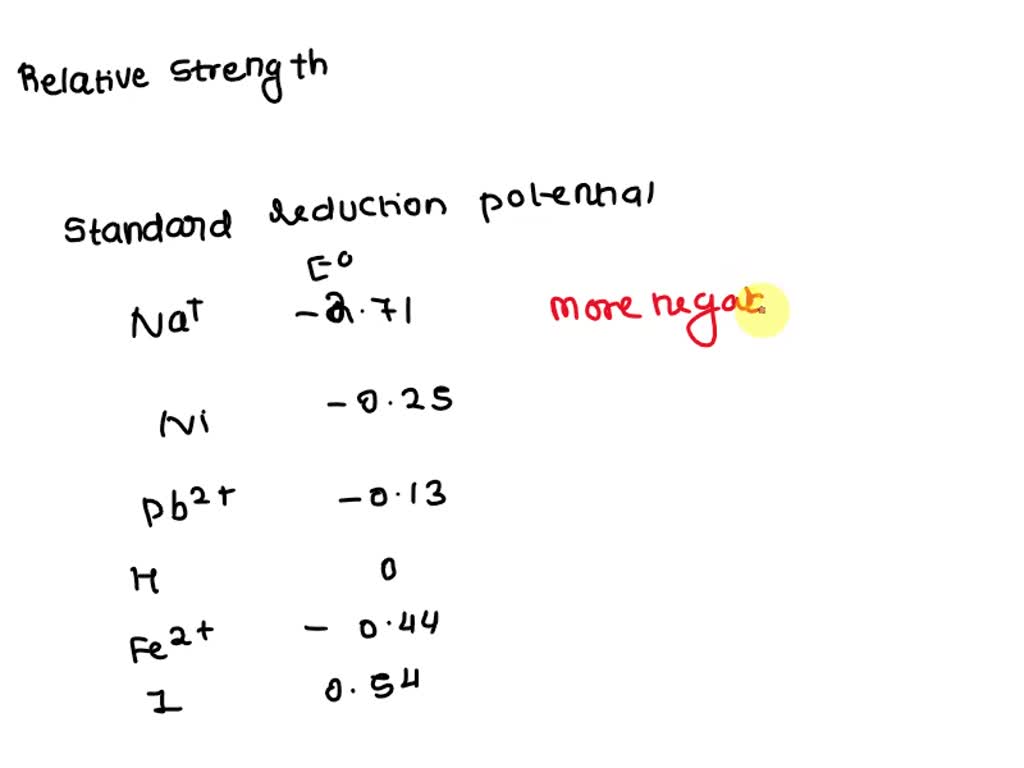 Relative strength
Standard reduction potential
E°
Na⁺ -2.71 more negat
Ni -0.25
Pb²⁺ -0.13
H 0
Fe²⁺ - 0.44
I 0.54